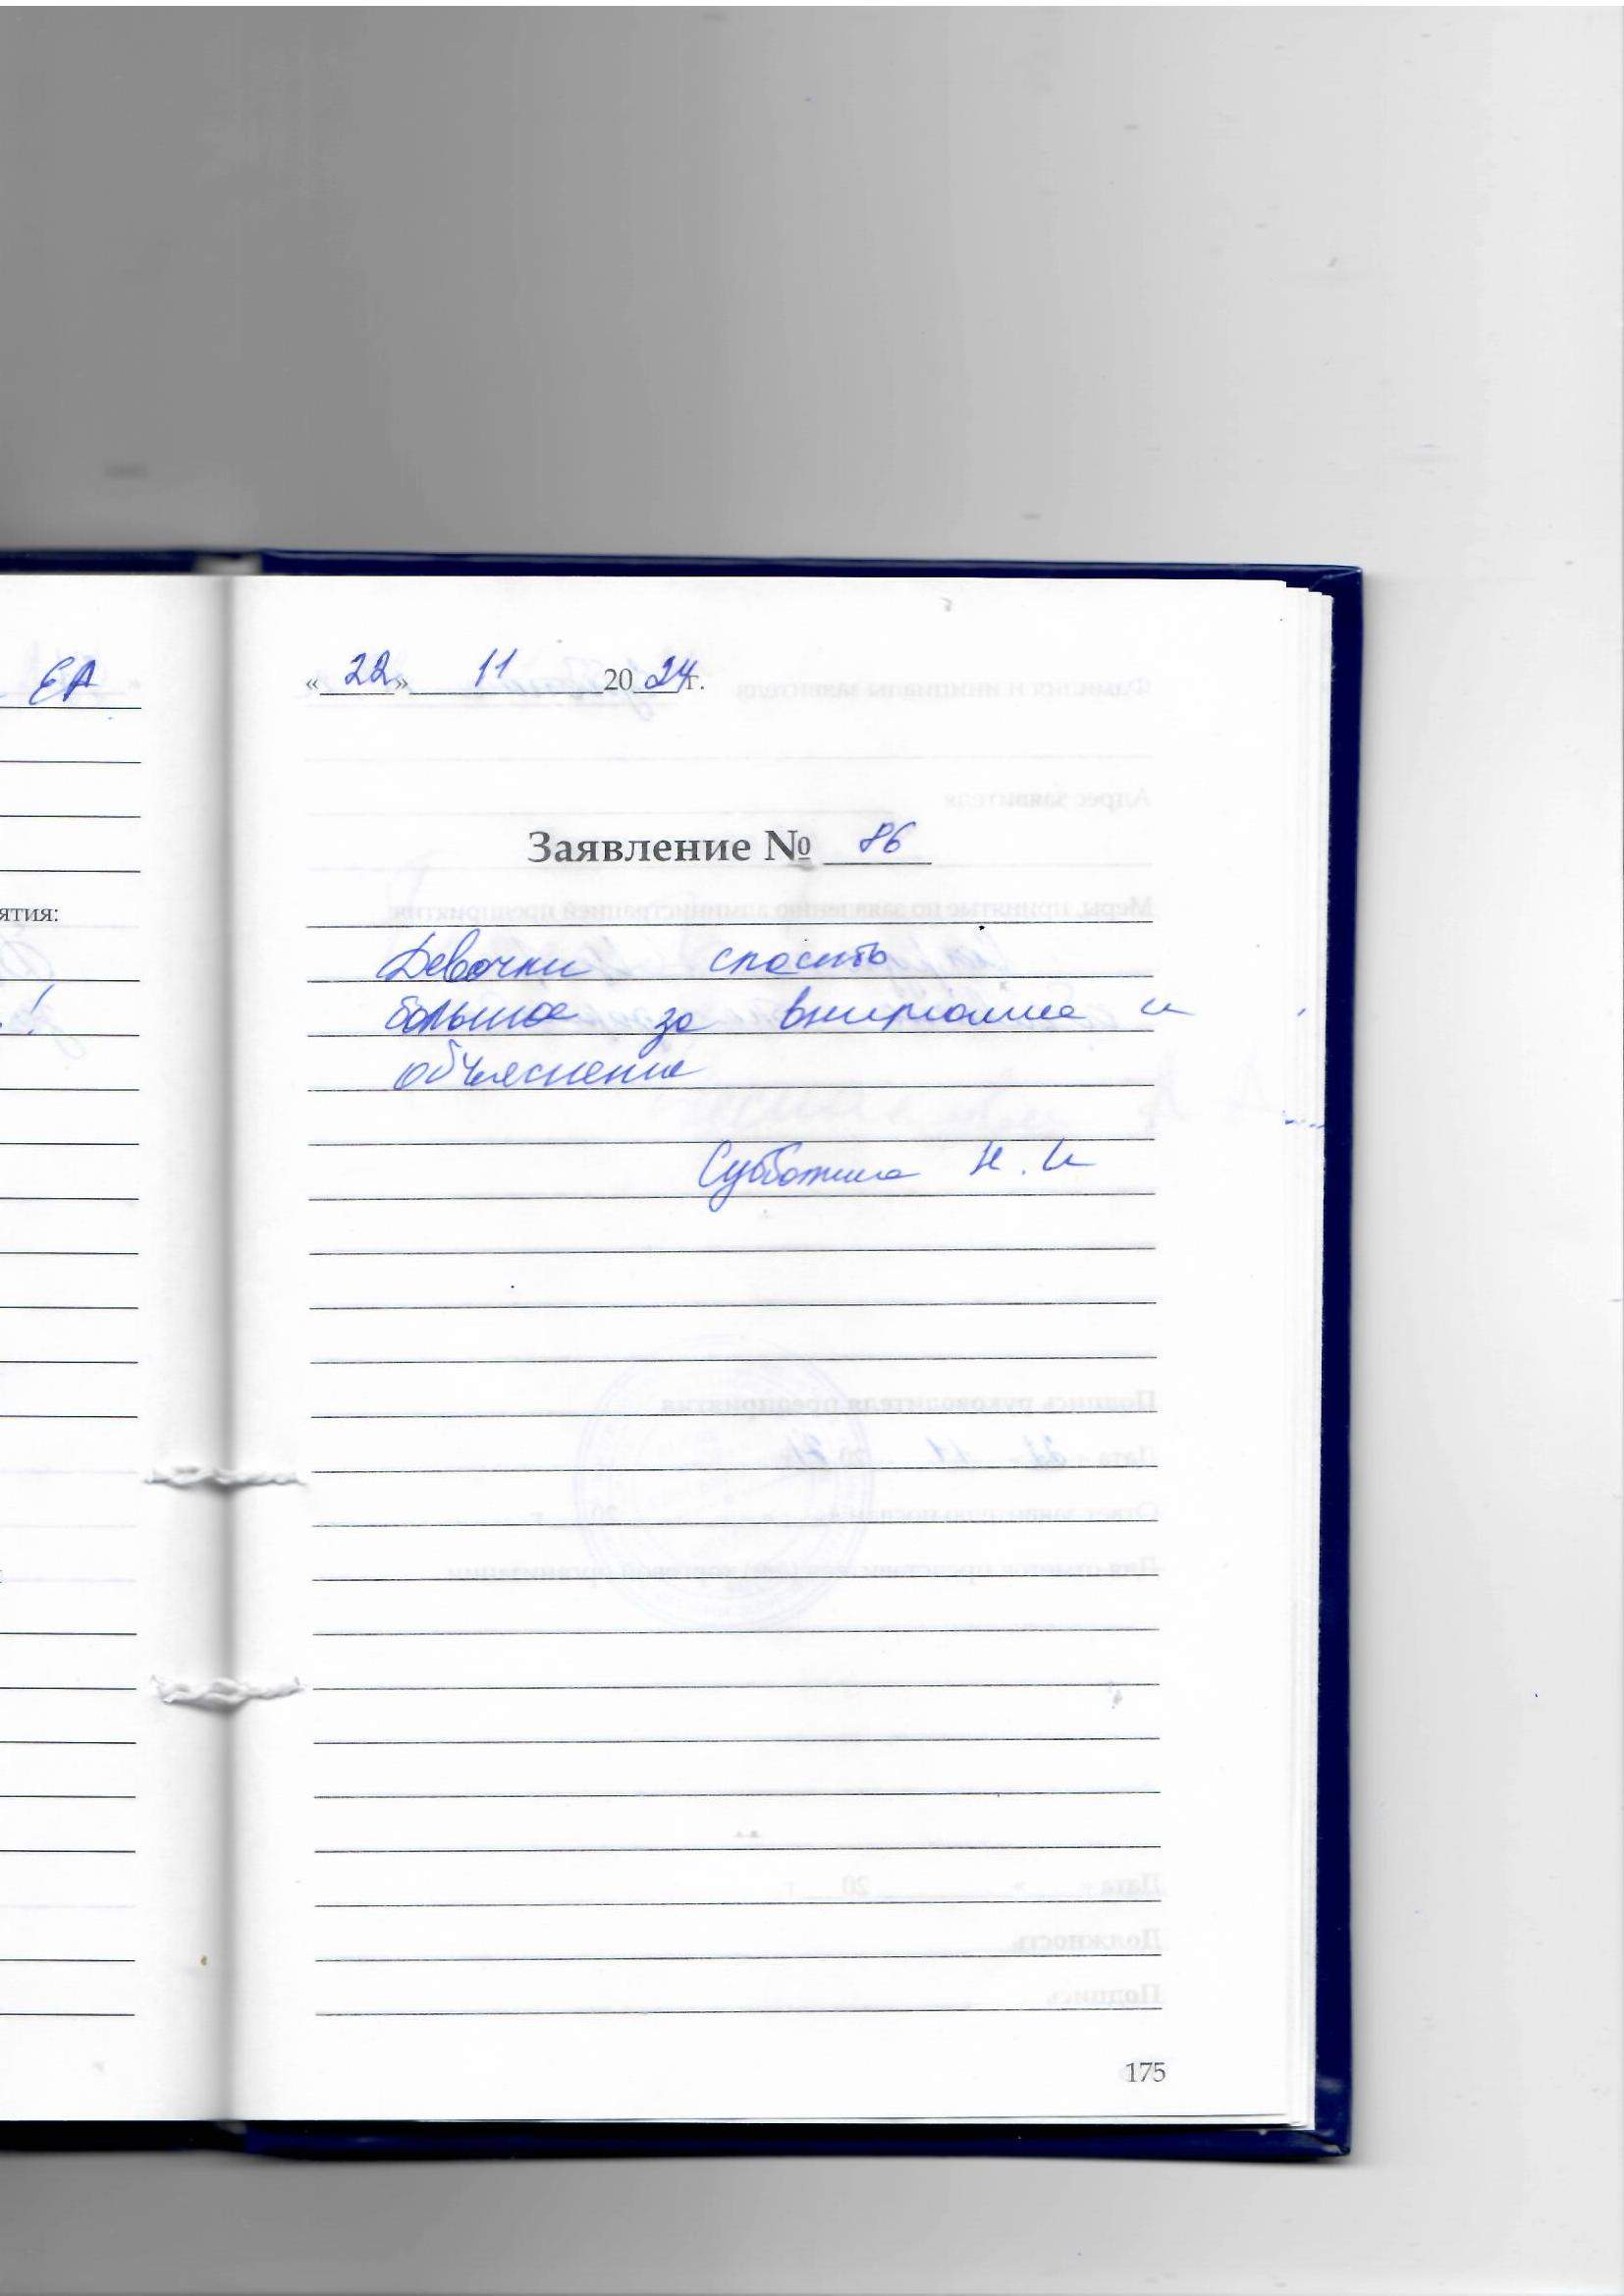 ЕА
ятия:
!
« 22 » 11 20 24 г.
Заявление № 86
Девочки спасибо
большое за внимание и
объяснение
Субботина Н. И
175